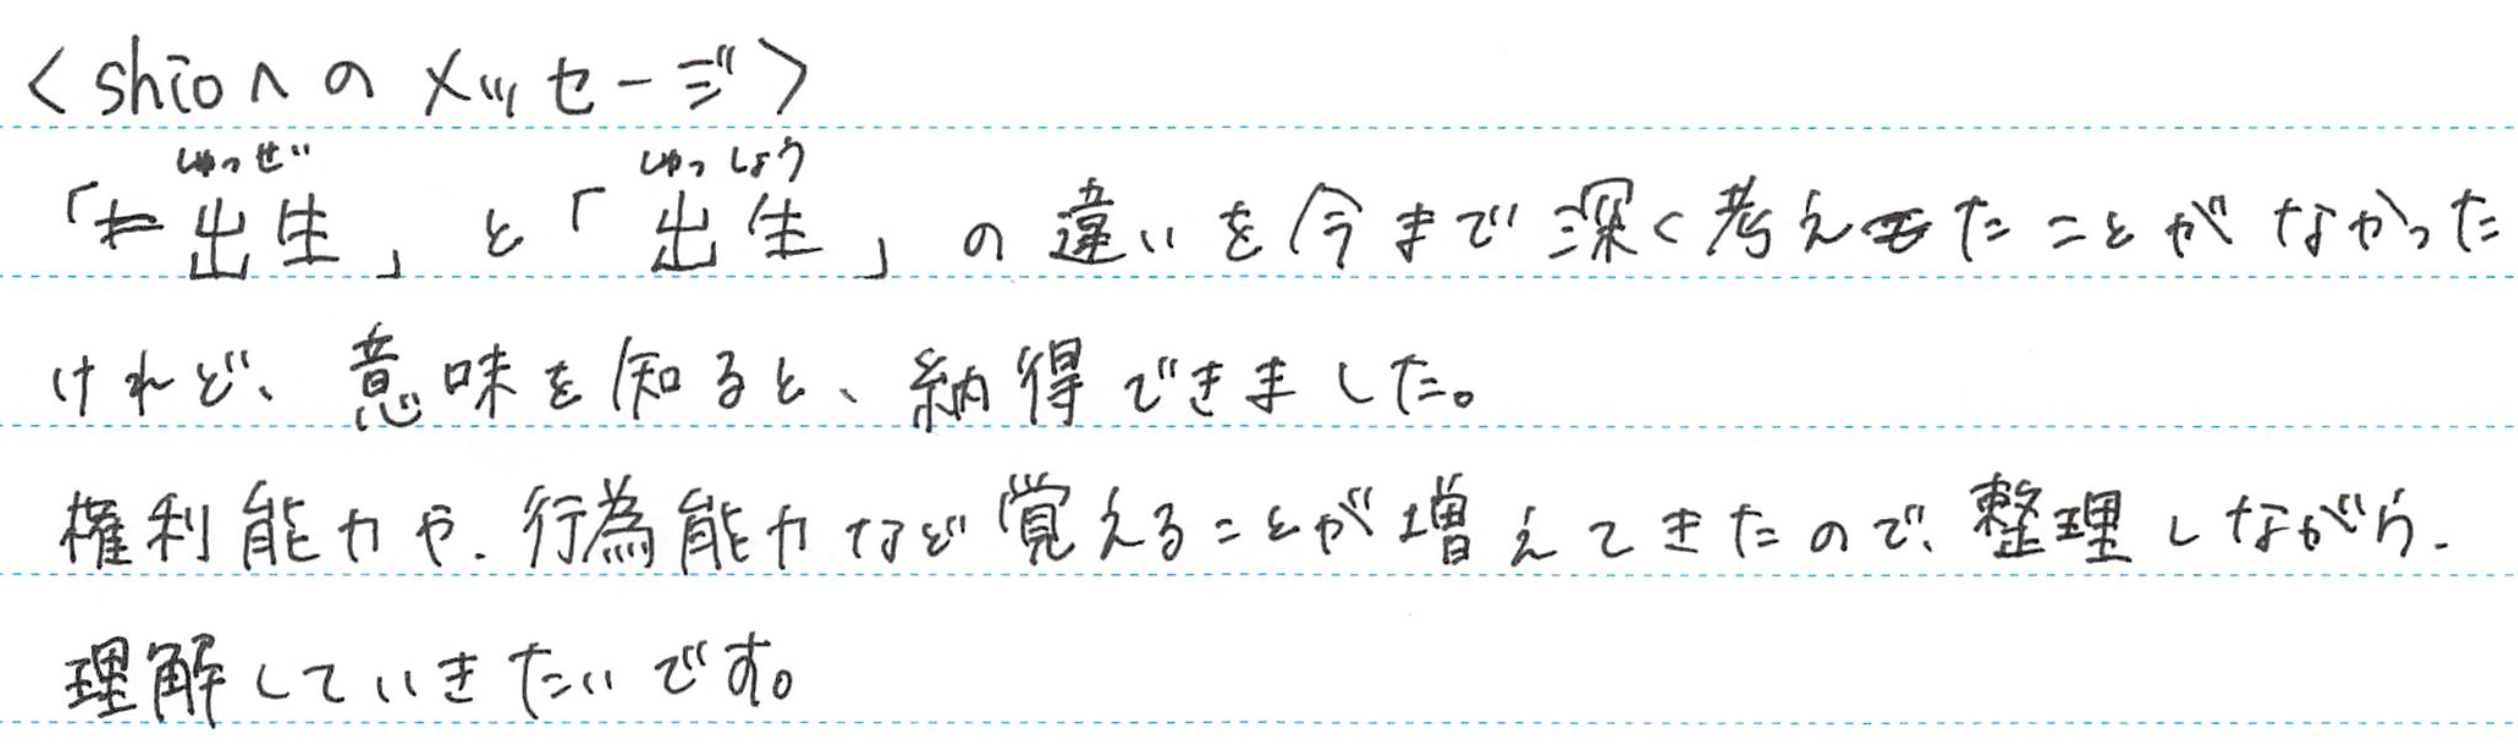 <shioへのメッセージ>
しゅっせい しゅっしょう
「出生」と「出生」の違いを今まで深く考えたことがなかった
けれど、意味を知ると、納得できました。
権利能力や、行為能力など覚えることが増えてきたので、整理しながら、
理解していきたいです。